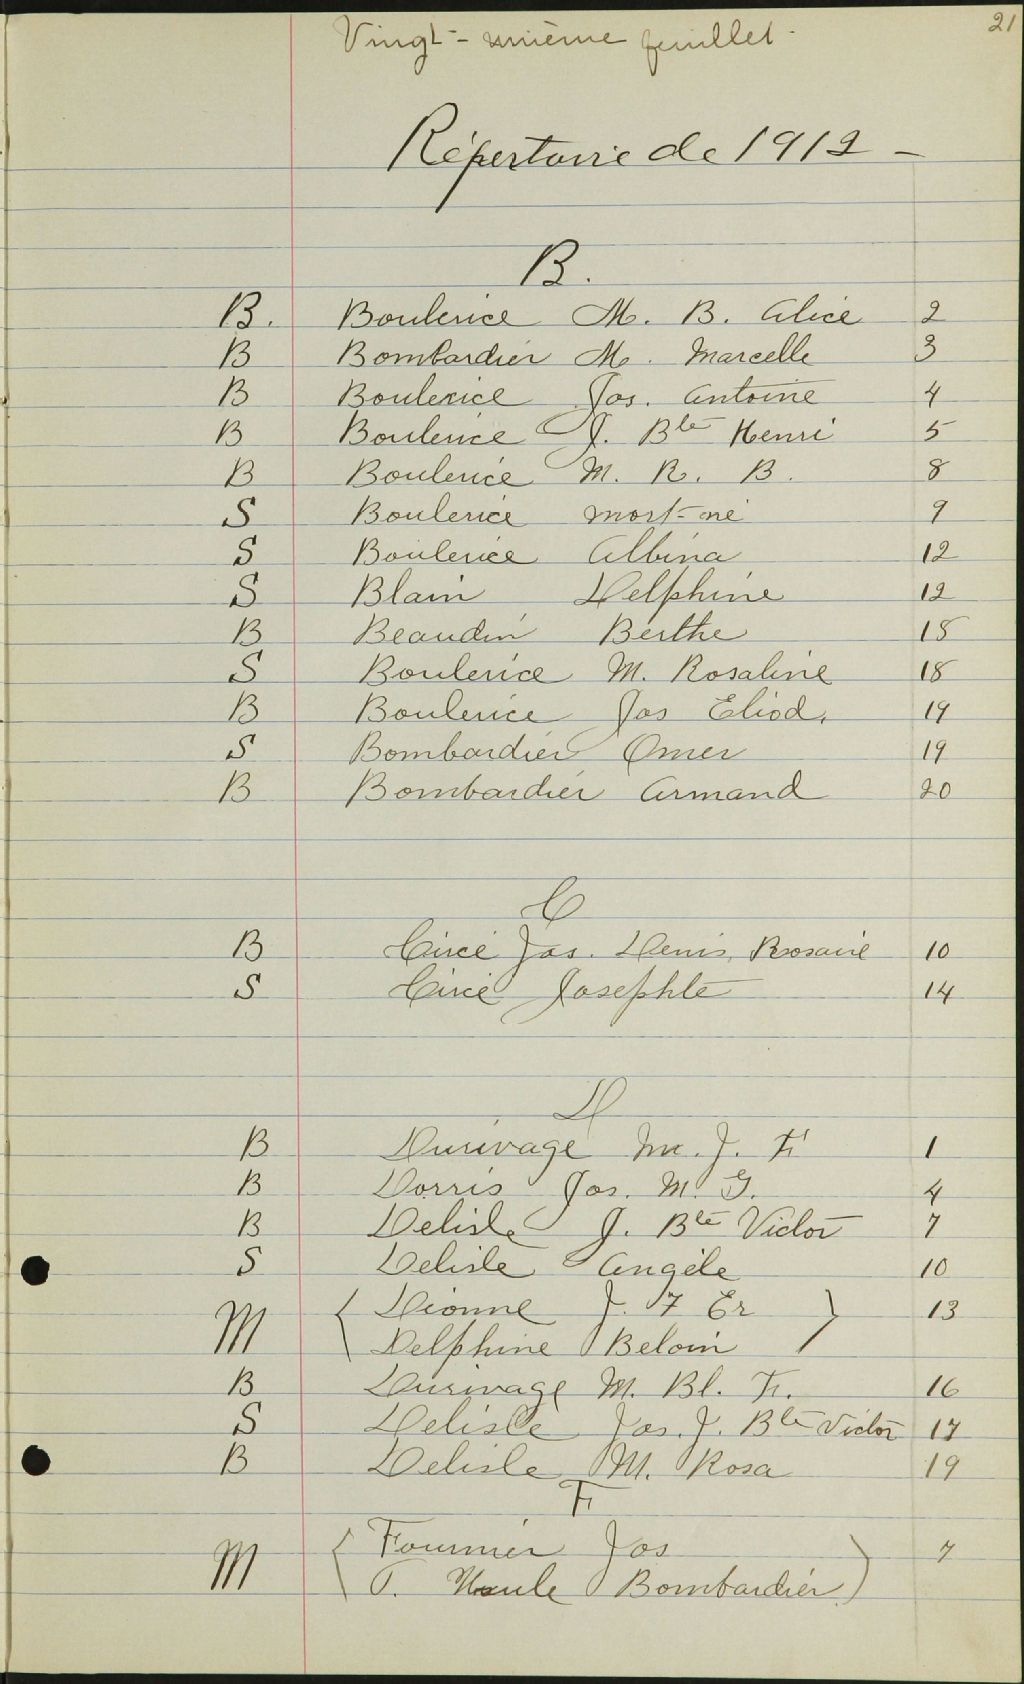 Vingt-unième feuillet. 21
Répertoire de 1912 -
B.
B. Boulerice M. B. Alice 2
B Bombardier M. Marcelle 3
B Boulerice Jos. Antoine 4
B Boulerice J. Bte Henri 5
B Boulerice M. R. B. 8
S Boulerice mort-né 9
S Boulerice Albina 12
S Blain Delphine 12
B Beaudin Berthe 15
S Boulerice M. Rosaline 18
B Boulerice Jos Eliod. 19
S Bombardier Omer 19
B Bombardier Armand 20
C
B Circé Jos. Denis Rosaire 10
S Circé Josephte 14
D
B Durivage M. J. F 1
B Dorris Jos. M. G. 4
B Delisle J. Bte Victor 7
S Delisle Angèle 10
M Dionne J. F Er 13
Delphine Beloin
B Durivage M. Bl. F. 16
S Delisle Jos. J. Bte Victor 17
B Delisle M. Rosa 19
F
M Fournier Jos 7
Bombardier